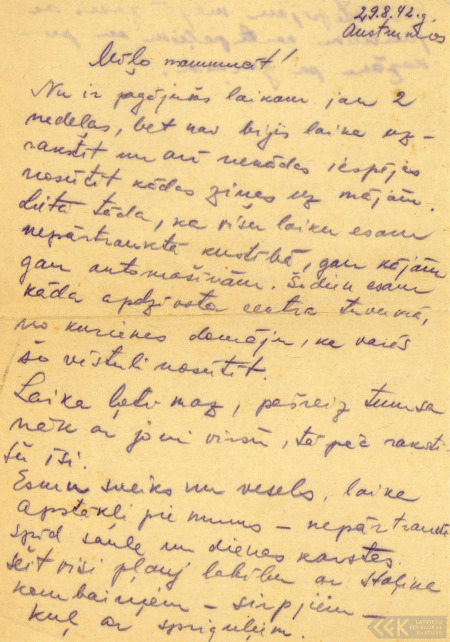 29.8.42.g.
Austrumos
Mīļo mammiņ!
Nu ir pagājušs laikam jau 2
nedēļas, bet nav bijis laika uz-
rakstīt un arī nekādas iespējas
nosūtīt kādas ziņas uz mājām.
Lieta tāda, ka visu laiku esam
nepārtrauktā kustībā, gan kājām
gan automašīnām. Šodien esam
kāda apdzīvota centra tuvumā,
no kurienes domāju, ka varēs
šo vēstuli nosūtīt.
Laika ļoti maz, pašreiz tumsa
nāk ar joni virsū, tāpēc rakstī-
šu īsi.
Esmu sveiks un vesels, laika
apstākļi pie mums – nepārtraukti
spīd saule un dienas karstas.
Šeit visi pļauj labību ar Staļina
kombaiņiem – sirpjiem –
kuļ ar spriguļiem.
LATVIEŠU
FOLKLORAS
KRĀTUVE